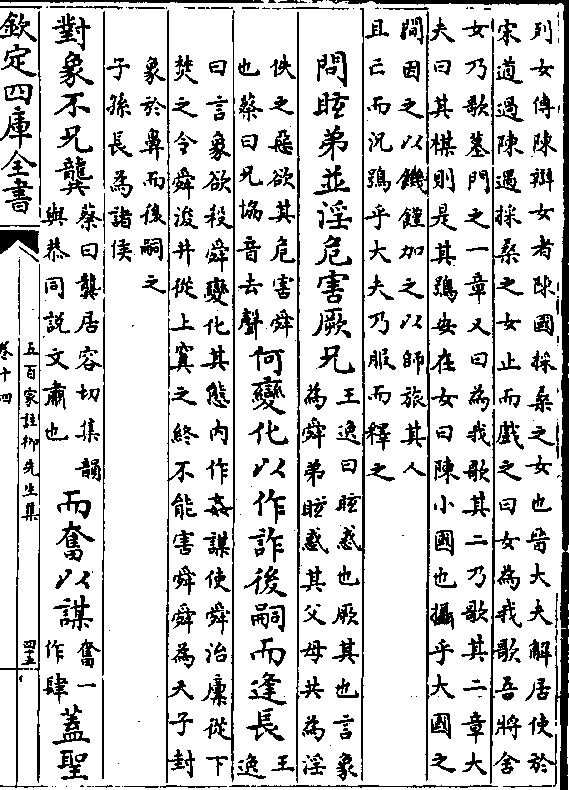 列女傳陳辯女者陳國採桑之女也晉大夫解居使於
宋道過陳遇採桑之女止而戲之曰女為我歌吾將舍
女乃歌墓門之一章又曰為我歌其二乃歌其二章大
夫曰其楳則是其鴞安在女曰陳小國也攝乎大國之
間因之以饑饉加之以師旅其人
且亡而況鴞乎大夫乃服而釋之
問眩弟並淫危害厥兄王逸曰眩惑也厥其也言象
為舜弟眩惑其父母共為淫
佚之惡欲其危害舜
也蔡曰兄協音去聲何變化以作詐後嗣而逢長王
逸
曰言象欲殺舜變化其態內作姦謀使舜治廩從下
焚之令舜浚井從上窴之終不能害舜舜為天子封
象於鼻而後嗣之
子孫長為諸侯
對象不兄龔蔡曰龔居容切集韻
與恭同説文肅也而奮以謀奮一
作肆蓋聖
欽定四庫全書
五百家註柳先生集
卷十四